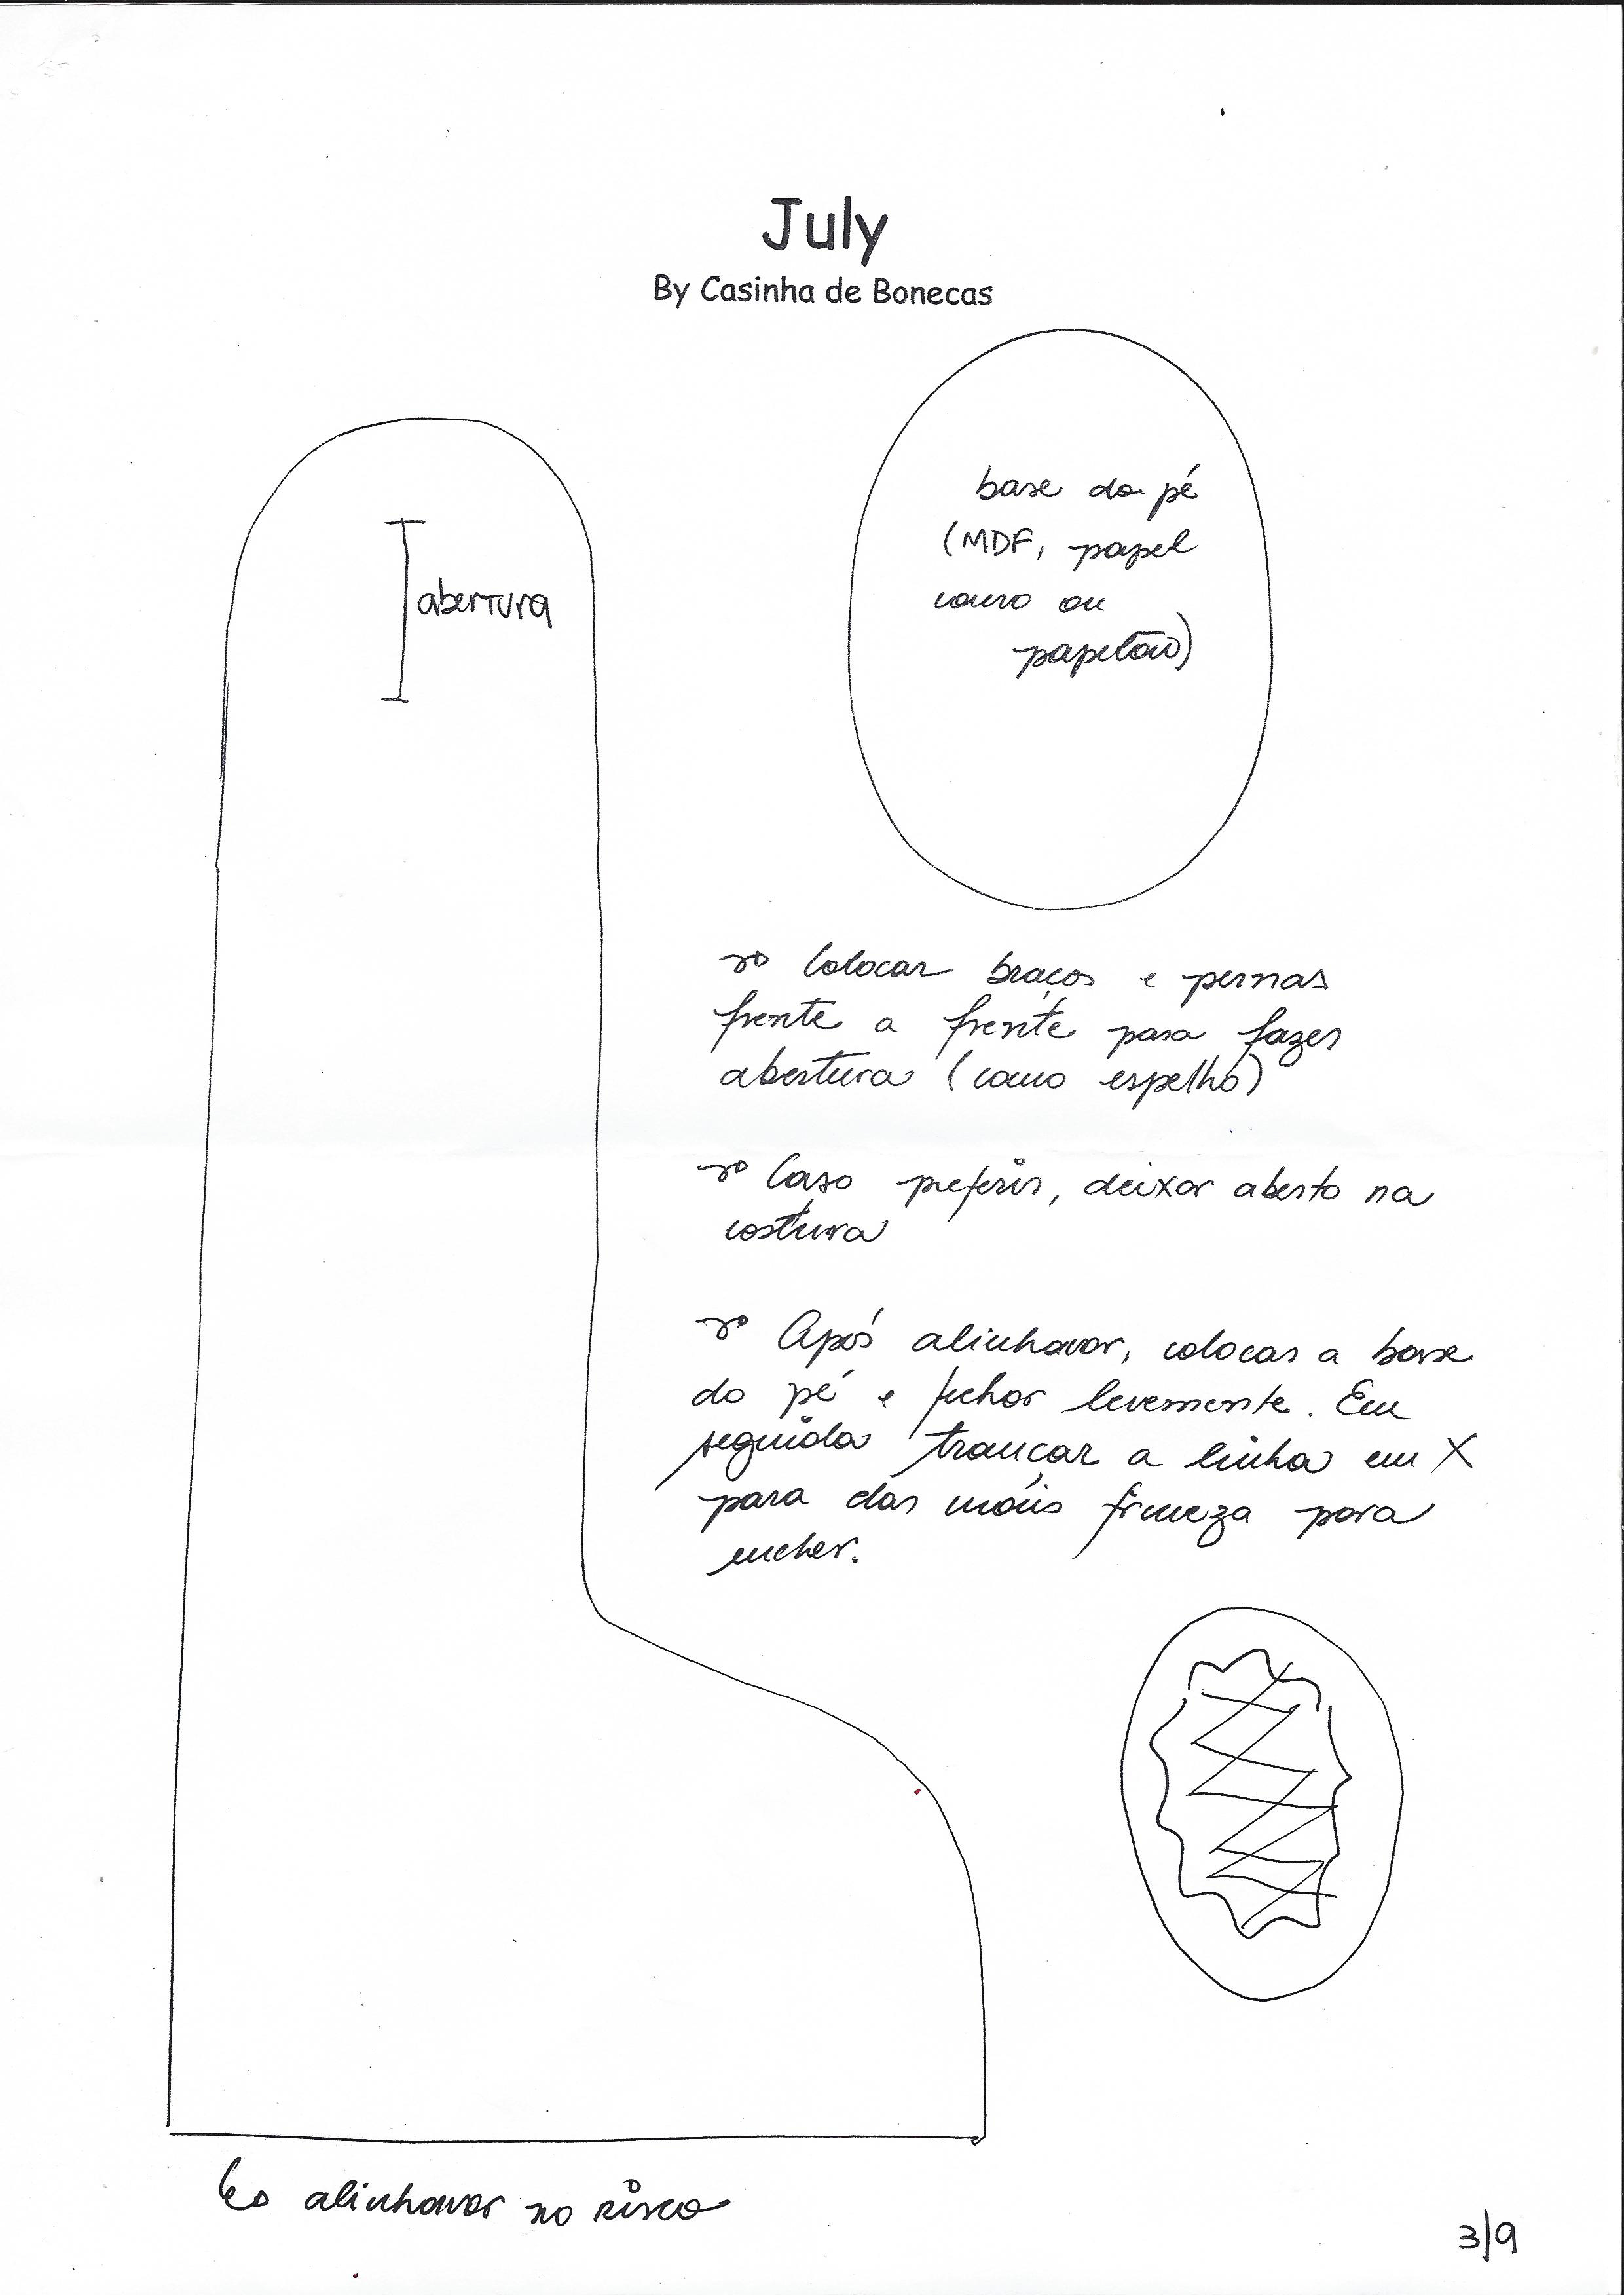 July
By Casinha de Bonecas
base do pé
(MDF, papel
couro ou
papelão)
abertura
Colocar braços e pernas
frente a frente para fazer
abertura (como espelho)
Caso preferir, deixar aberto na
costura
Após alinhavar, colocar a base
do pé e fechar levemente. Em
seguida trançar a linha em X
para dar mais firmeza para
encher.
alinhavar no risco
3/9